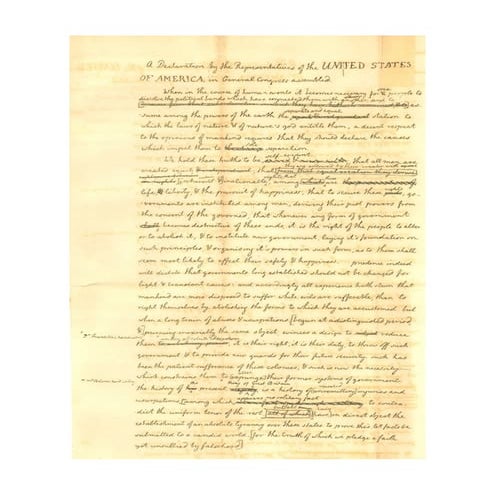 A Declaration by the Representatives of the UNITED STATES
OF AMERICA, in General Congress assembled.
When in the course of human events it becomes necessary for one people to
dissolve the political bands which have connected them with another, and to
sume among the powers of the earth the separate and equal station to
which the laws of nature & of nature's god entitle them, a decent respect
to the opinions of mankind requires that they should declare the causes
which impel them to the separation.
We hold these truths to be self-evident, that all men are
created equal
life, & liberty, & the pursuit of happiness; that to secure these rights, go-
vernments are instituted among men, deriving their just powers from
the consent of the governed; that whenever any form of government
becomes destructive of these ends, it is the right of the people to alter
or to abolish it, & to institute new government, laying it's foundation on
such principles & organising it's powers in such form, as to them shall
seem most likely to effect their safety & happiness. prudence indeed
will dictate that governments long established should not be changed for
light & transient causes: and accordingly all experience hath shewn that
mankind are more disposed to suffer while evils are sufferable, than to
right themselves by abolishing the forms to which they are accustomed. but
when a long train of abuses & usurpations [begun at a distinguished period
& pursuing invariably the same object, evinces a design to reduce
them it is their right, it is their duty, to throw off such
government & to provide new guards for their future security. such has
been the patient sufferance of these colonies; & such is now the necessity
which constrains them to [expunge] their former systems of government.
the history of the present is a history of injuries and
usurpations, [among which to contra-
dict the uniform tenor of the rest have] in direct object the
establishment of an absolute tyranny over these states. to prove this let facts be
submitted to a candid world, [for the truth of which we pledge a faith
yet unsullied by falsehood]